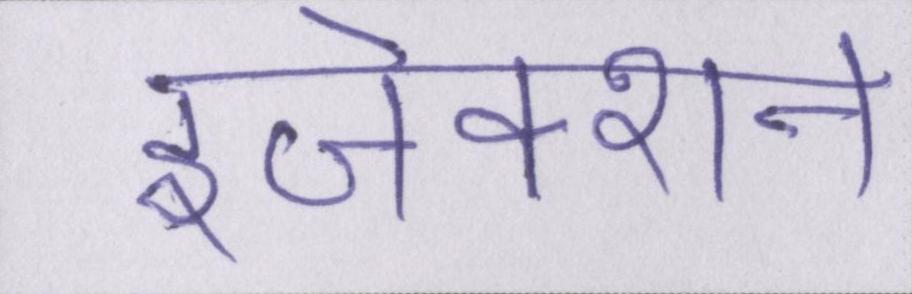 इजेक्शन